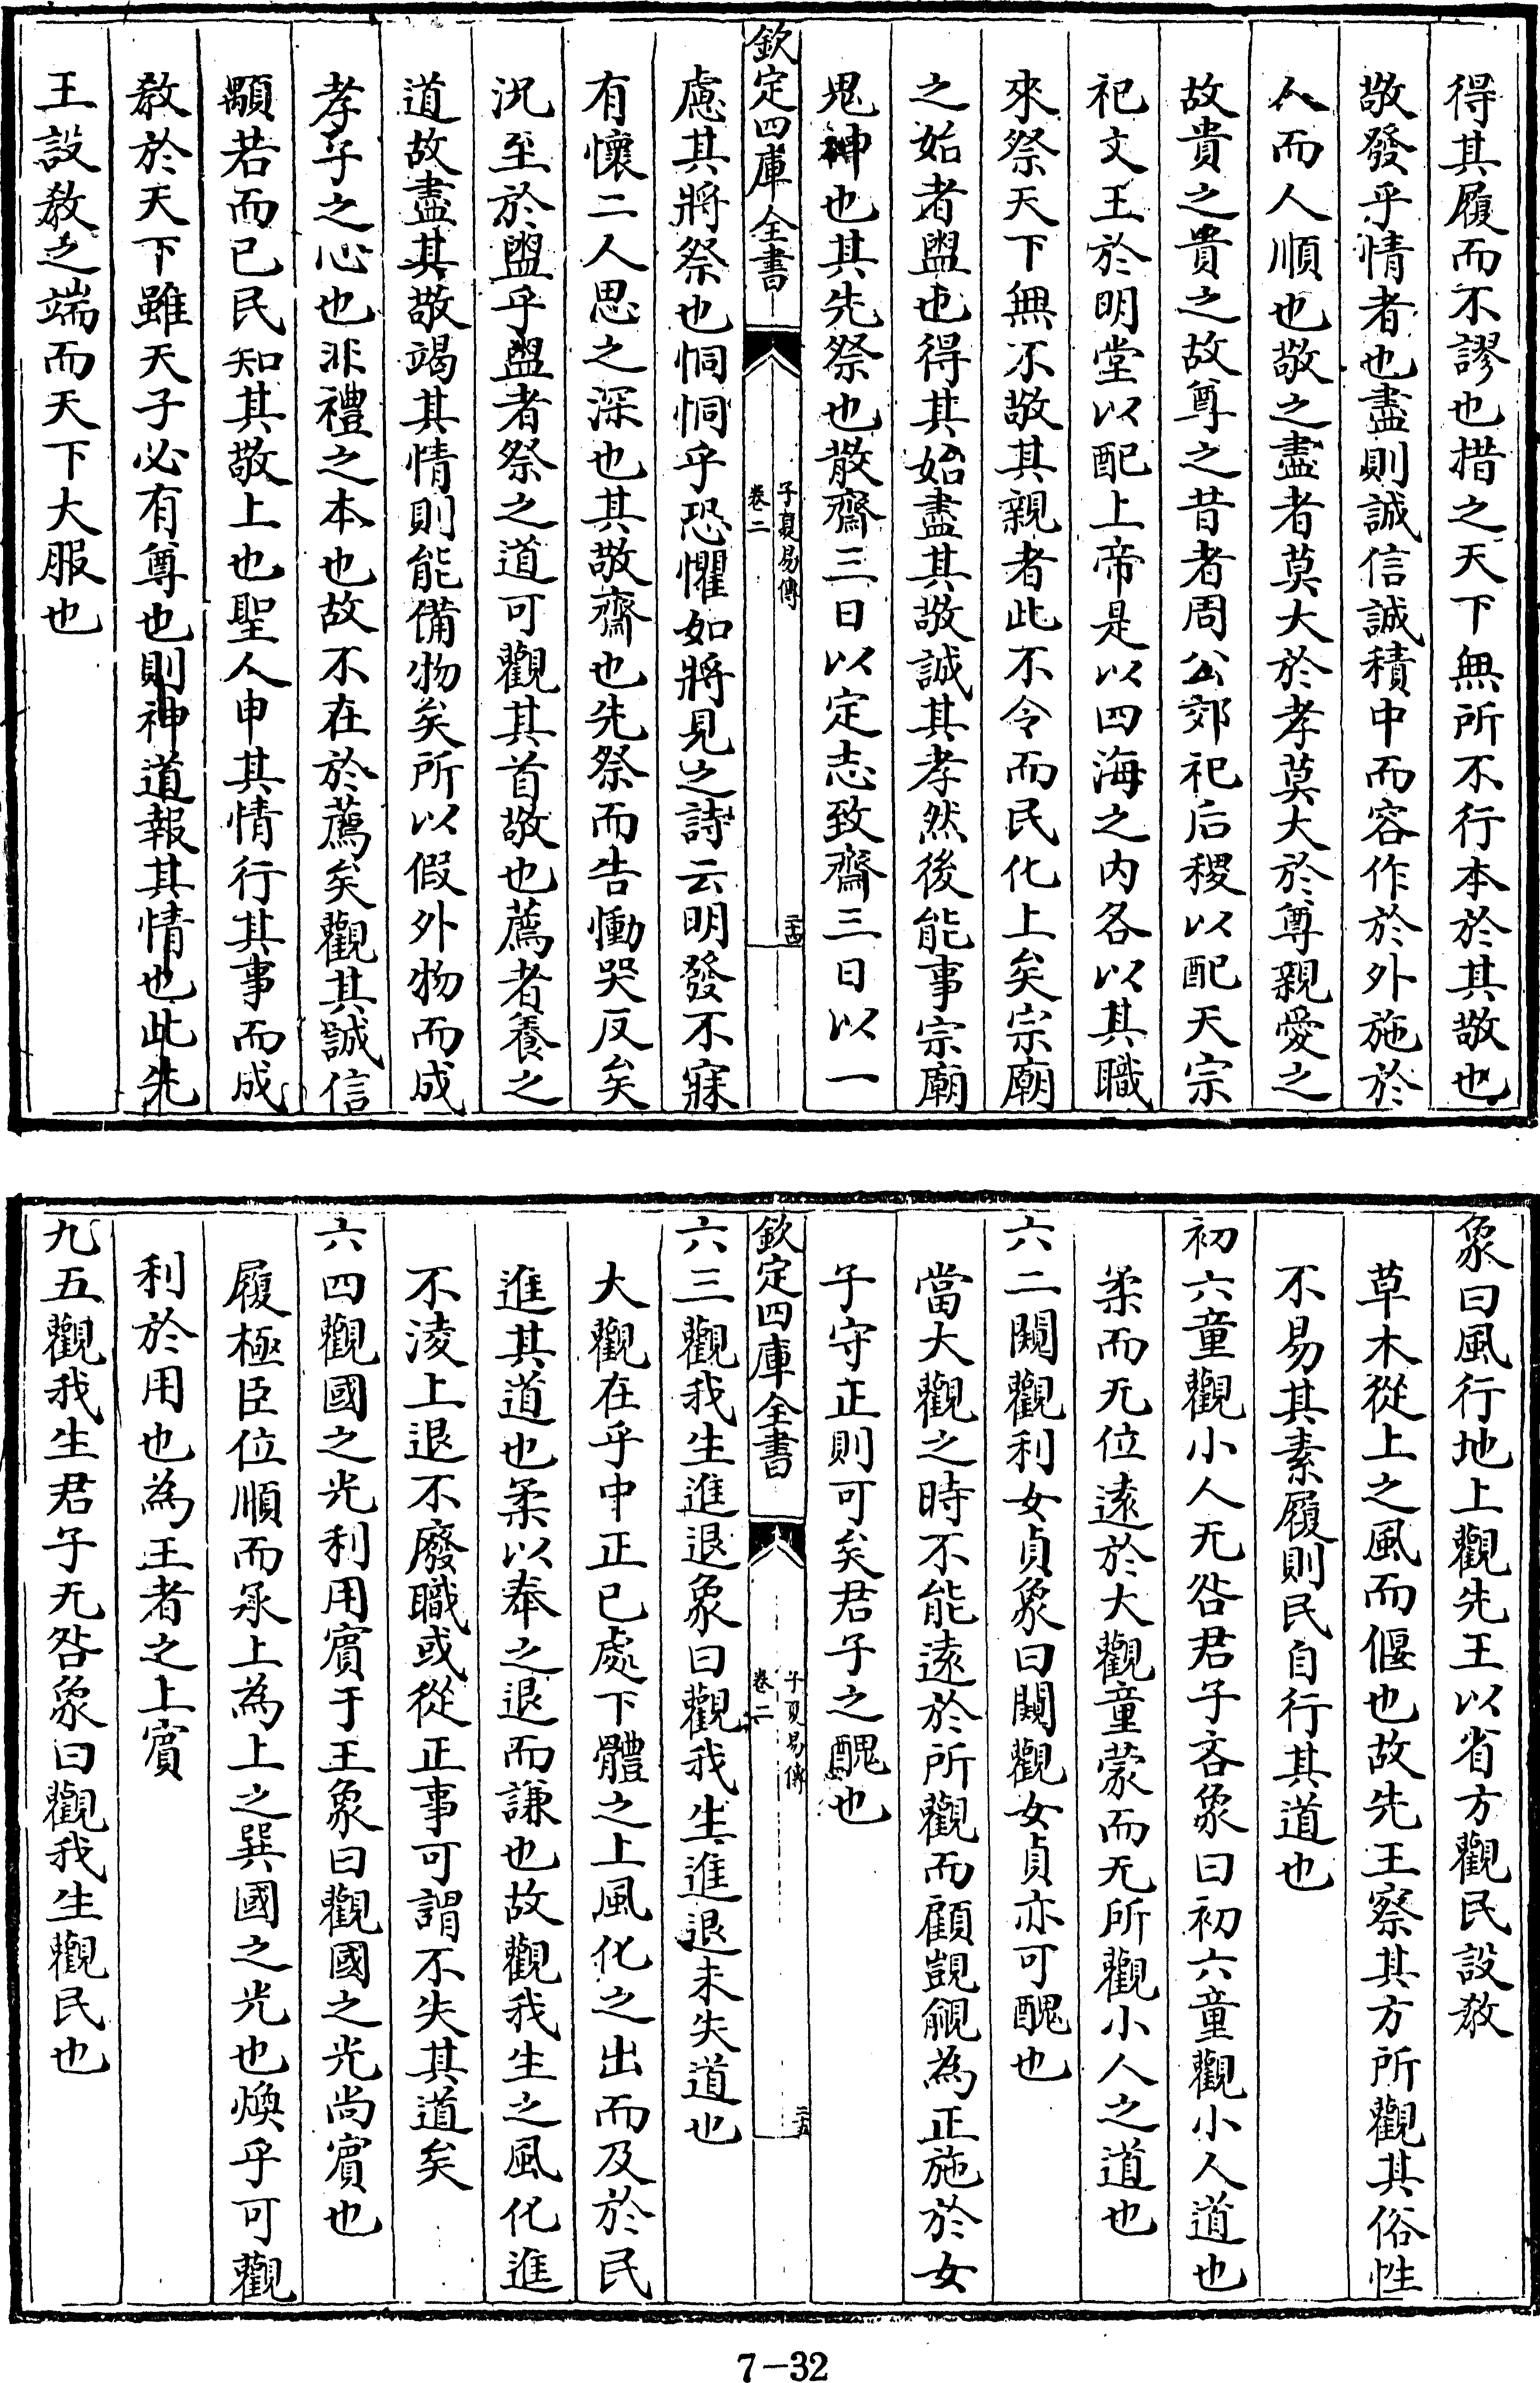 得其履而不謬也措之天下無所不行本於其敬也
敬發乎情者也盡則誠信誠積中而容作於外施於
人而人順也敬之盡者莫大於孝莫大於尊親愛之
故貴之貴之故尊之昔者周公郊祀后稷以配天宗
祀文王於明堂以配上帝是以四海之内各以其職
來祭天下無不敬其親者此不令而民化上矣宗廟
之始者盥也得其始盡其敬誠其孝然後能事宗廟
鬼神也其先祭也散齋三日以定志致齋三日以一
欽定四庫全書
子夏易傳
卷二
二十四
慮其將祭也恫恫乎恐懼如將見之詩云明發不寐
有懷二人思之深也其敬齋也先祭而告慟哭反矣
況至於盥乎盥者祭之道可觀其首敬也薦者養之
道故盡其敬竭其情則能備物矣所以假外物而成
孝子之心也非禮之本也故不在於薦矣觀其誠信
顒若而已民知其敬上也聖人申其情行其事而成
教於天下雖天子必有尊也則神道報其情也此先
王設教之端而天下大服也
象曰風行地上觀先王以省方觀民設教
草木從上之風而偃也故先王察其方所觀其俗性
不易其素履則民自行其道也
初六童觀小人无咎君子吝象曰初六童觀小人道也
柔而无位逺於大觀童蒙而无所觀小人之道也
六二闚觀利女貞象曰闚觀女貞亦可醜也
當大觀之時不能逺於所觀而顧覬覦為正施於女
子守正則可矣君子之醜也
欽定四庫全書
子夏易傳
卷二
二十五
六三觀我生進退象曰觀我生進退未失道也
大觀在乎中正已處下體之上風化之出而及於民
進其道也柔以奉之退而謙也故觀我生之風化進
不淩上退不廢職或從正事可謂不失其道矣
六四觀國之光利用賓于王象曰觀國之光尚賓也
履極臣位順而承上為上之巽國之光也煥乎可觀
利於用也為王者之上賓
九五觀我生君子无咎象曰觀我生觀民也
7-32